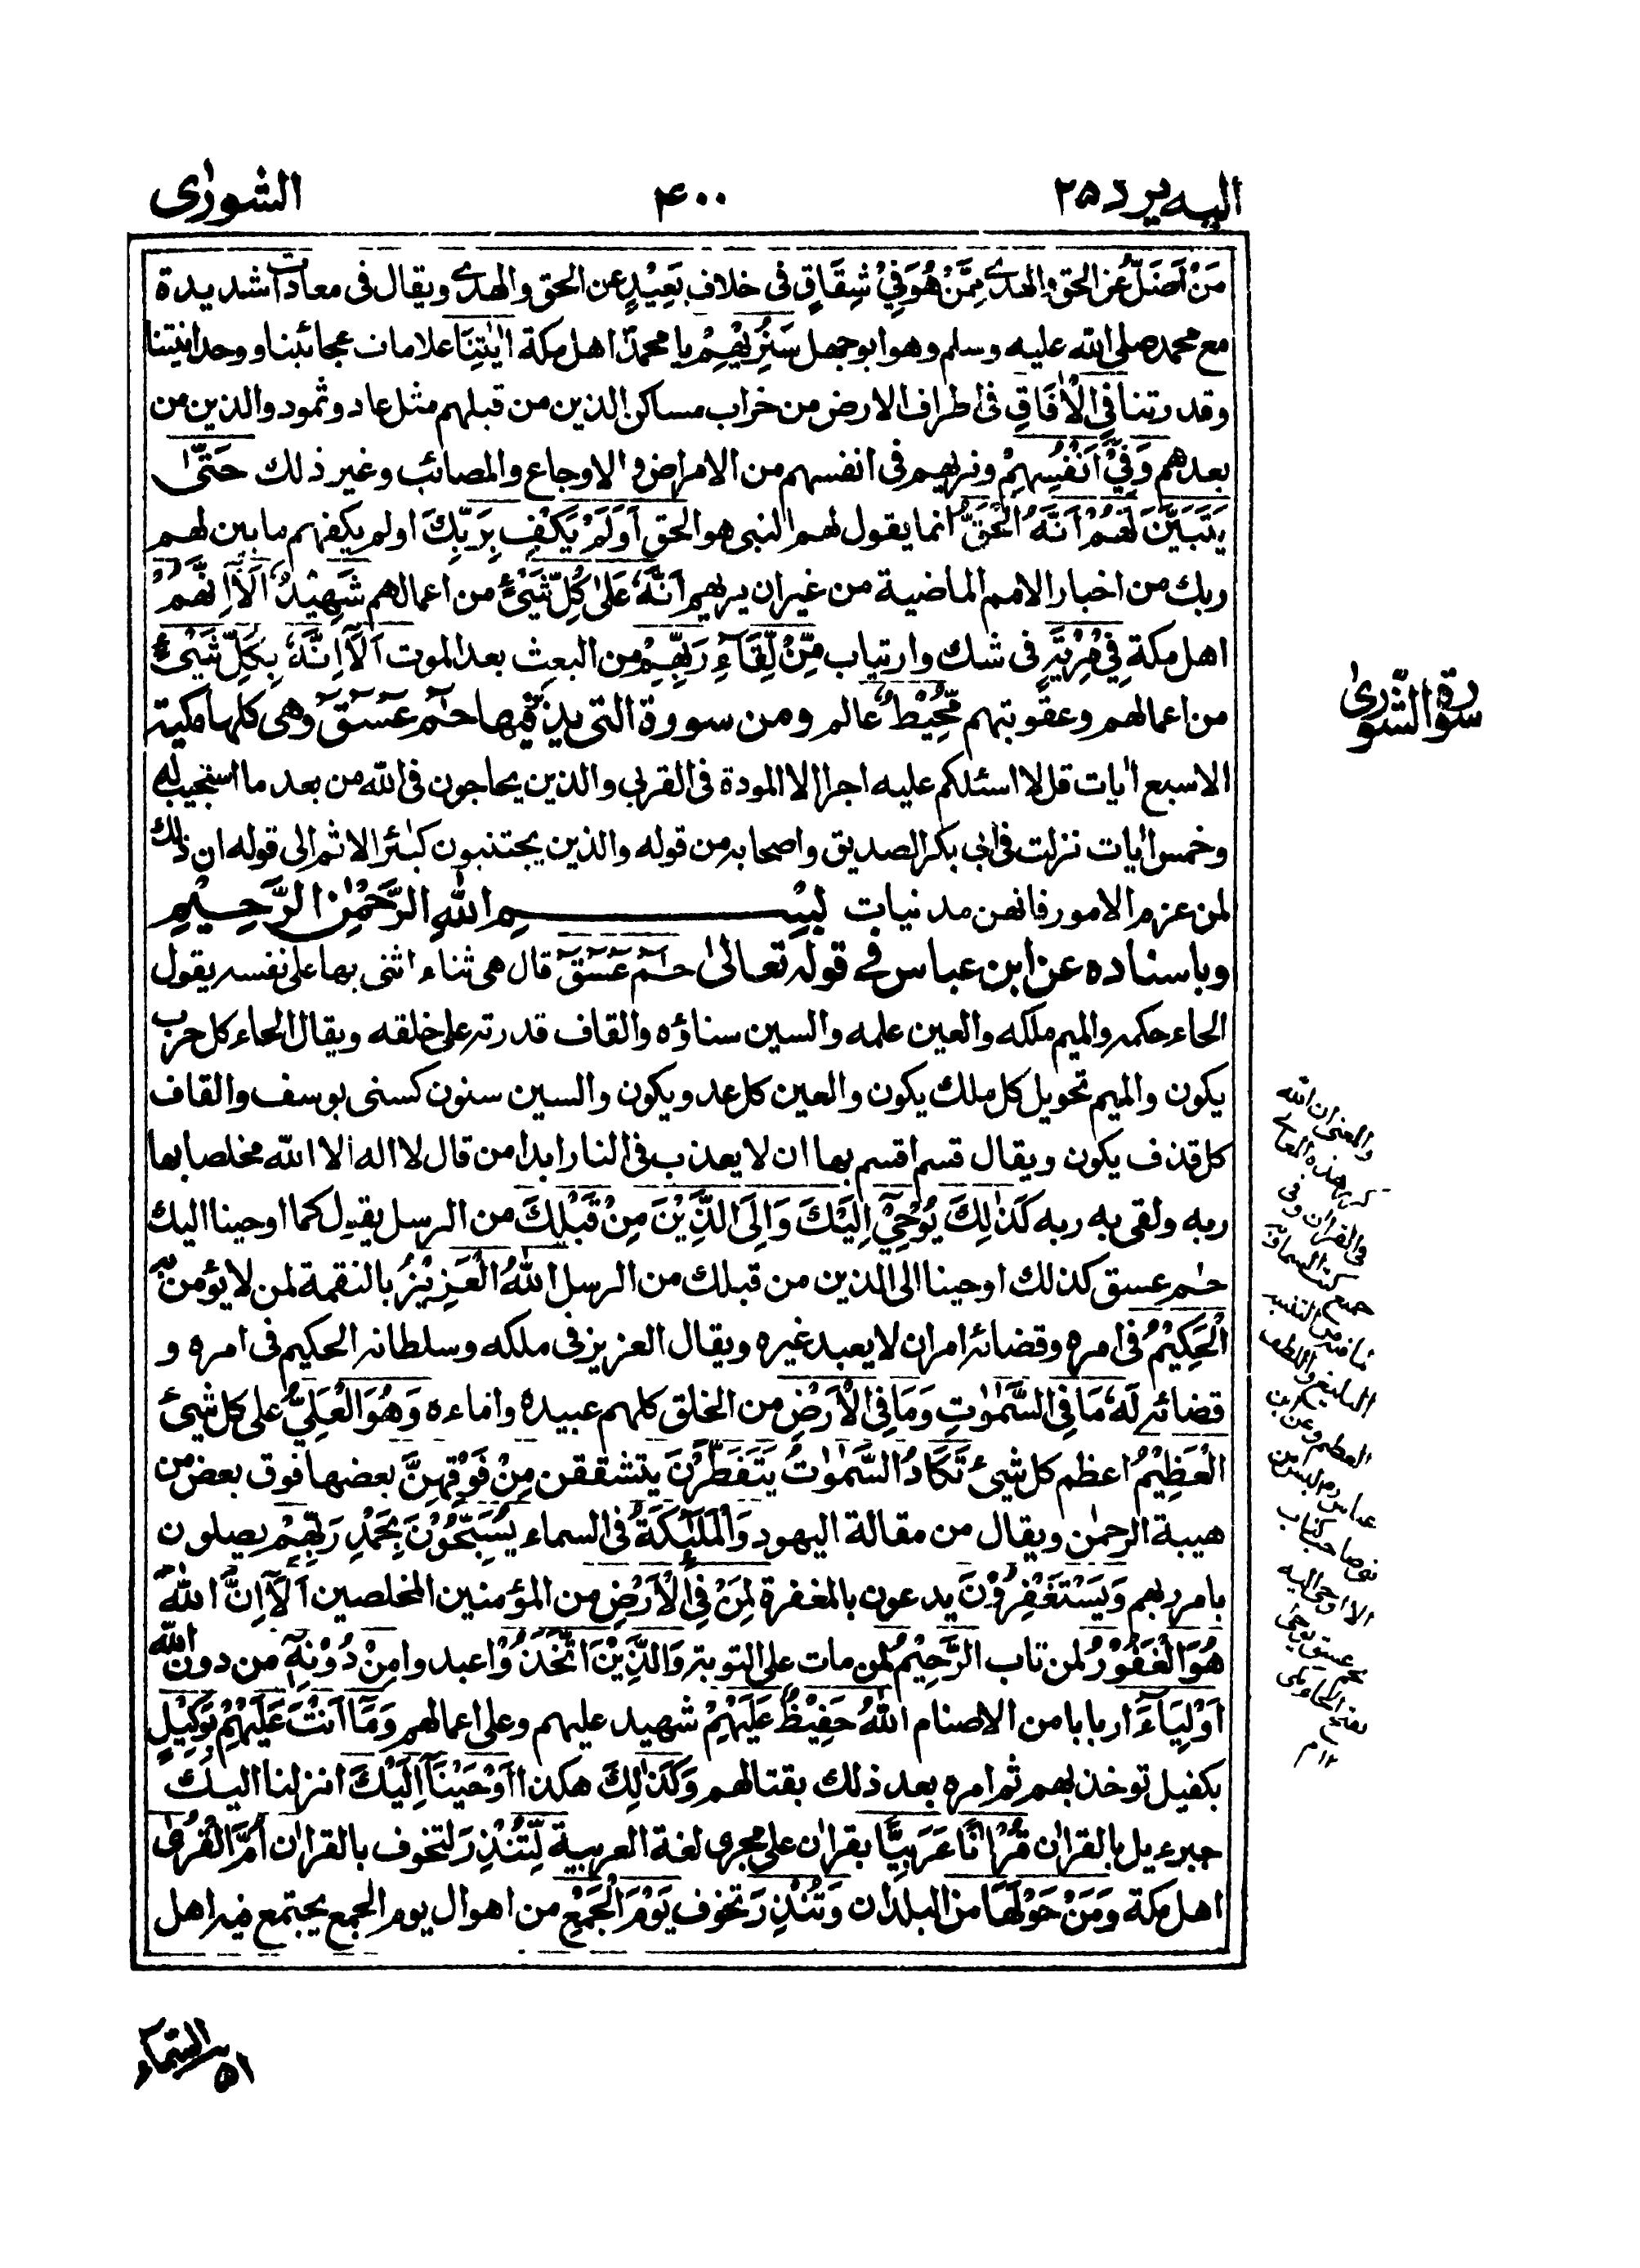 اليه يرد ٢٥
۴۰۰
الشورٰى
مَنْ اَضَلُّ عن الحق والهدے مِمَّنْ هُوَ فِيْ شِقَاقٍ فى خلاف بَعِيْدٍ عن الحق والهدے ويقال فى معادات شديدة
مع محمد صلى الله عليه وسلم وهو ابو جهل سَنُرِيْهِمْ يا محمد اهل مكة اٰيٰتِنَا علامات عجائبنا ووحدانيتنا
وقدرتنا فِي الْاٰفَاقِ فى اطراف الارض من خراب مساكن الذين من قبلهم مثل عاد وثمود والذين من
بعدهم وَفِيْٓ اَنْفُسِهِمْ ونريهم فى انفسهم من الامراض والاوجاع والمصائب وغير ذلك حَتّٰى
يَتَبَيَّنَ لَهُمْ اَنَّهُ الْحَقُّ انما يقول لهم النبى هو الحق اَوَلَمْ يَكْفِ بِرَبِّكَ اولم يكفهم ما بين لهم
ربك من اخبار الامم الماضية من غير ان يريهم اَنَّهٗ عَلٰى كُلِّ شَيْءٍ من اعمالهم شَهِيْدٌ اَلَآ اِنَّهُمْ
اهل مكة فِيْ مِرْيَةٍ فى شك وارتياب مِّنْ لِّقَآءِ رَبِّهِمْ من البعث بعد الموت اَلَآ اِنَّهٗ بِكُلِّ شَيْءٍ
من اعمالهم وعقوبتهم مُّحِيْطٌ عالم ومن سورة التى يذكر فيها حٰمٓ عٓسٓقٓ وهى كلها مكية
الا سبع اٰيات قل لا اسئلكم عليه اجرا الا المودة فى القربى والذين يحاجون فى الله من بعد ما استجيب له
وخمس اٰيات نزلت فى ابى بكر الصديق واصحابه من قوله والذين يجتنبون كبٰئر الاثم الى قوله ان ذلك
لمن عزم الامور فانهن مدنيات بِسْمِ اللّٰهِ الرَّحْمٰنِ الرَّحِيْمِ
وباسناده عن ابن عباس فے قوله تعالىٰ حٰمٓ عٓسٓقٓ قال هى ثناء اثنى بها على نفسه يقول
الحاء حكمه والميم ملكه والعين علمه والسين سناؤه والقاف قدرته على خلقه ويقال الحاء كل حرب
يكون والميم تحويل كل ملك يكون والعين كل عدو يكون والسين سنون كسنى يوسف والقاف
كل قذف يكون ويقال قسم اقسم بها ان لا يعذب فى النار ابدا من قال لا اله الا الله مخلصا بها
ربه ولقى به ربه كَذٰلِكَ يُوْحِيْٓ اِلَيْكَ وَاِلَى الَّذِيْنَ مِنْ قَبْلِكَ من الرسل يقول كما اوحينا اليك
حٰم عسق كذلك اوحينا الى الذين من قبلك من الرسل اللّٰهُ الْعَزِيْزُ بالنقمة لمن لا يؤمن به
الْحَكِيْمُ فى امره وقضائه امر ان لا يعبد غيره ويقال العزيز فى ملكه وسلطانه الحكيم فى امره و
قضائه لَهٗ مَا فِي السَّمٰوٰتِ وَمَا فِي الْاَرْضِ من الخلق كلهم عبيده واماءه وَهُوَ الْعَلِيُّ على كل شئ
الْعَظِيْمُ اعظم كل شئ تَكَادُ السَّمٰوٰتُ يَتَفَطَّرْنَ يتشققن مِنْ فَوْقِهِنَّ بعضها فوق بعض من
هيبة الرحمٰن ويقال من مقالة اليهود وَالْمَلٰٓئِكَةُ فى السماء يُسَبِّحُوْنَ بِحَمْدِ رَبِّهِمْ يصلون
بامر ربهم وَيَسْتَغْفِرُوْنَ يدعون بالمغفرة لِمَنْ فِي الْاَرْضِ من المؤمنين المخلصين اَلَآ اِنَّ اللّٰهَ
هُوَ الْغَفُوْرُ لمن تاب الرَّحِيْمُ لمن مات على التوبة وَالَّذِيْنَ اتَّخَذُوْا عبدوا مِنْ دُوْنِهٖٓ من دون الله
اَوْلِيَآءَ اربابا من الاصنام اللّٰهُ حَفِيْظٌ عَلَيْهِمْ شهيد عليهم وعلى اعمالهم وَمَآ اَنْتَ عَلَيْهِمْ بِوَكِيْلٍ
بكفيل توخذ بهم ثم امره بعد ذلك بقتالهم وَكَذٰلِكَ هكذا اَوْحَيْنَآ اِلَيْكَ انزلنا اليك
جبرءيل بالقراٰن قُرْاٰنًا عَرَبِيًّا بقراٰن على مجرى لغة العربية لِّتُنْذِرَ لتخوف بالقراٰن اُمَّ الْقُرٰى
اهل مكة وَمَنْ حَوْلَهَا من البلدان وَتُنْذِرَ تخوف يَوْمَ الْجَمْعِ من اهوال يوم الجمع يجتمع فيه اهل
سورة الشورىٰ
والمعنى ان الله
هذه
فى القراٰن وفى
جميع كتب السماوية
من
البليغ واللطف
العظيم وعن ابن
عباس رض ليس من
نبى صاحب كتاب
الا اوحى اليه
١٢ م
السماء